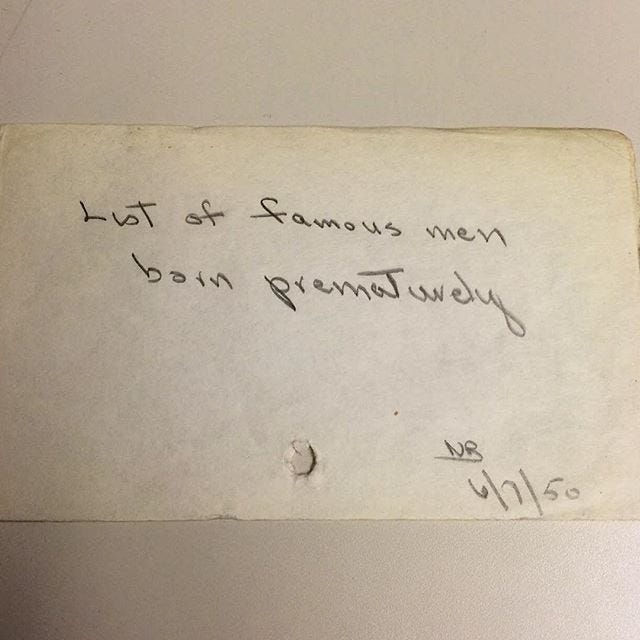 List of famous men
born prematurely
NB
6/7/50